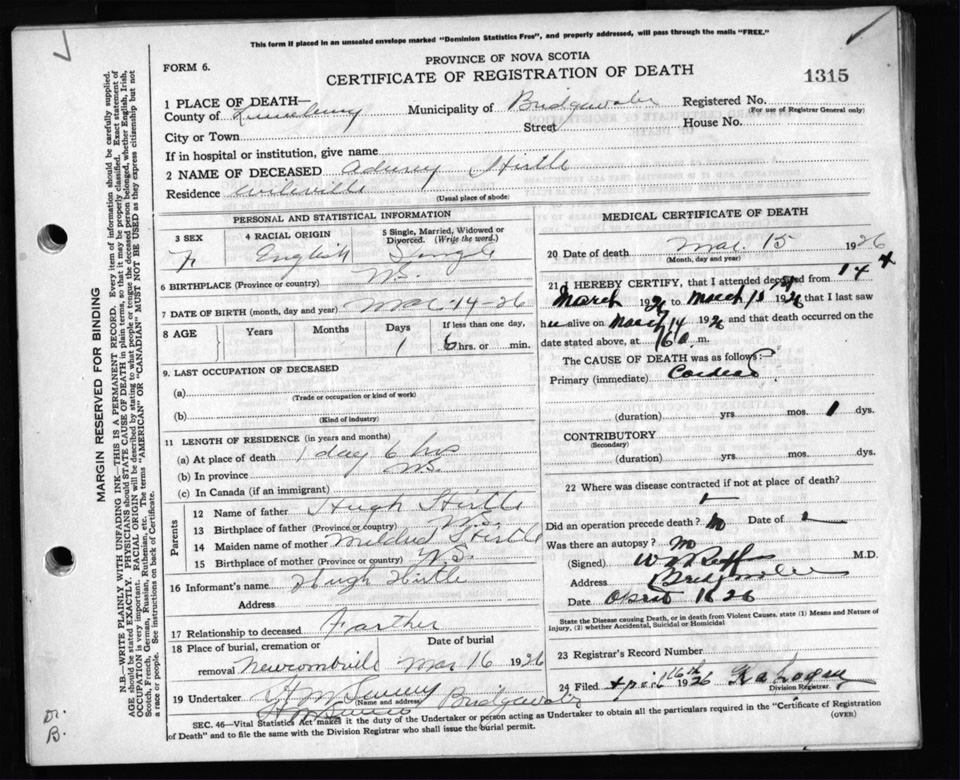 This form if placed in an unsealed envelope marked "Dominion Statistics Free", and properly addressed, will pass through the mails "FREE."
FORM 6.
PROVINCE OF NOVA SCOTIA
CERTIFICATE OF REGISTRATION OF DEATH
1315
1 PLACE OF DEATH—
County of Lunenburg Municipality of Bridgewater Registered No.
(For use of Registrar General only)
City or Town Street House No.
If in hospital or institution, give name
2 NAME OF DECEASED Hirtle
Residence Wileville
(Usual place of abode)
PERSONAL AND STATISTICAL INFORMATION
3 SEX 4 RACIAL ORIGIN 5 Single, Married, Widowed or Divorced. (Write the word.)
F English Single
6 BIRTHPLACE (Province or country) N.S.
7 DATE OF BIRTH (month, day and year) Mar 14-26
8 AGE Years Months Days If less than one day,
1 6 hrs. or min.
9. LAST OCCUPATION OF DECEASED
(a)
(Trade or occupation or kind of work)
(b)
(Kind of industry)
11 LENGTH OF RESIDENCE (in years and months)
(a) At place of death 1 day 6 hrs
(b) In province N.S.
(c) In Canada (if an immigrant)
Parents
12 Name of father Hugh Hirtle
13 Birthplace of father (Province or country) N.S.
14 Maiden name of mother Mildred Hirtle
15 Birthplace of mother (Province or country) N.S.
16 Informant's name Hugh Hirtle
Address
17 Relationship to deceased Farther
18 Place of burial, cremation or removal Date of burial
Newcombville Mar 16 1926
19 Undertaker Bridgewater
(Name and address)
MEDICAL CERTIFICATE OF DEATH
20 Date of death Mar. 15 1926
(Month, day and year)
21 I HEREBY CERTIFY, that I attended deceased from 14
March 1926 to March 15 1926 that I last saw
h alive on March 14 1926 and that death occurred on the
date stated above, at 6 a. m.
The CAUSE OF DEATH was as follows:—
Primary (immediate)
(duration) yrs. mos. 1 dys.
CONTRIBUTORY
(Secondary)
(duration) yrs. mos. dys.
22 Where was disease contracted if not at place of death?
Did an operation precede death? No Date of
Was there an autopsy? No
(Signed) M.D.
Address Bridgewater
Date 16 26
State the Disease causing Death, or in death from Violent Causes, state (1) Means and Nature of Injury, (2) whether Accidental, Suicidal or Homicidal
23 Registrar's Record Number
24 Filed April 16th 1926
Division Registrar
SEC. 46—Vital Statistics Act makes it the duty of the Undertaker or person acting as Undertaker to obtain all the particulars required in the "Certificate of Registration
of Death" and to file the same with the Division Registrar who shall issue the burial permit.
(OVER)
MARGIN RESERVED FOR BINDING
N.B.—WRITE PLAINLY WITH UNFADING INK—THIS IS A PERMANENT RECORD. Every item of information should be carefully supplied.
AGE should be stated EXACTLY. PHYSICIANS should STATE CAUSE OF DEATH in plain terms, so that it may be properly classified. Exact statement of
OCCUPATION is very important. RACIAL ORIGIN will be described by stating to what people or tongue the deceased person belonged, whether English, Irish,
Scotch, French, German, Russian, Ruthenian, etc. The terms "AMERICAN" or "CANADIAN" MUST NOT BE USED as they express citizenship but not
a race or people. See instructions on back of Certificate.